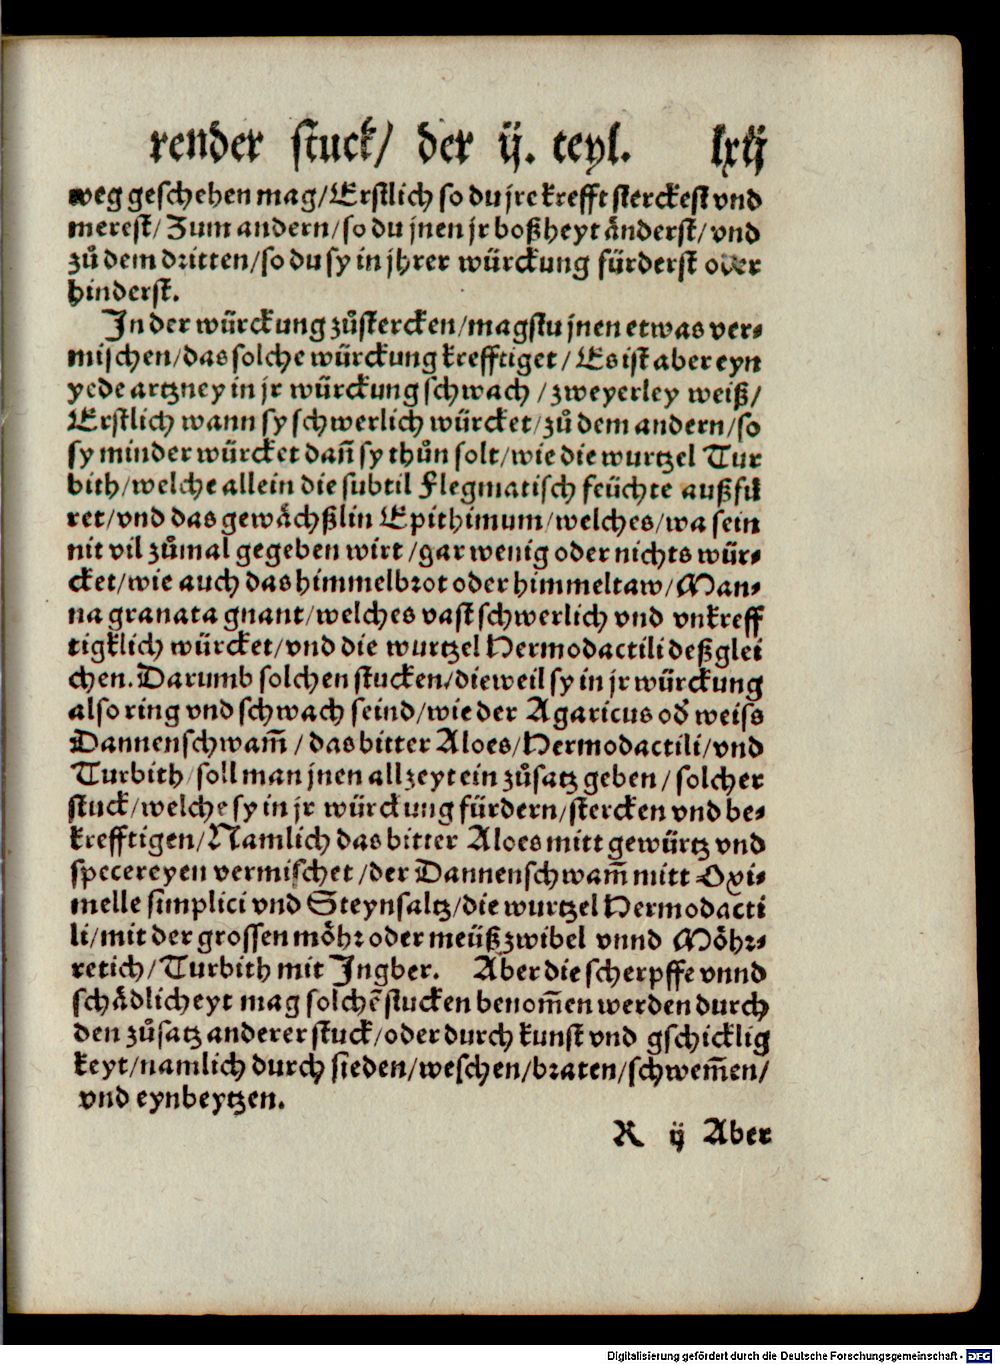 render stuck/ der ij. teyl. lxij
weg geschehen mag/Erstlich so du jre krefft sterckest vnd
merest/Zum andern/so du jnen jr boßheyt änderst/vnd
zů dem dritten/so du sy in jhrer würckung fürderst oder
hinderst.
In der würckung zůstercken/magstu jnen etwas ver⸗
mischen/das solche würckung krefftiget/Es ist aber eyn
yede artzney in jr würckung schwach/zweyerley weiß/
Erstlich wann sy schwerlich würcket/zů dem andern/so
sy minder würcket dañ sy thůn solt/wie die wurtzel Tur
bith/welche allein die subtil flegmatisch feüchte außfü
ret/vnd das gewächßlin Epithimum/welches/wa sein
nit vil zůmal gegeben wirt/gar wenig oder nichts wür⸗
cket/wie auch das himmelbrot oder himmeltaw/Man⸗
na granata gnant/welches vast schwerlich vnd vnkreff
tigklich würcket/vnd die wurtzel Hermodactili deßglei
chen. Darumb solchen stucken/dieweil sy in jr würckung
also ring vnd schwach seind/wie der Agaricus oď weiss
Dannenschwam̃/das bitter Aloes/Hermodactili/vnd
Turbith/soll man jnen allzeyt ein zůsatz geben/solcher
stuck/welche sy in jr würckung fürdern/stercken vnd be⸗
krefftigen/Namlich das bitter Aloes mitt gewürtz vnd
specereyen vermischet/der Dannenschwam̃ mitt Oxi⸗
melle simplici vnd Steynsaltz/die wurtzel Hermodacti
li/mit der grossen möhr oder meüßzwibel vnnd Möhr⸗
retich/Turbith mit Ingber. Aber die scherpffe vnnd
schädlicheyt mag solchẽ stucken benom̃en werden durch
den zůsatz anderer stuck/oder durch kunst vnd gschicklig
keyt/namlich durch sieden/weschen/braten/schwem̃en/
vnd eynbeytzen.
R ij Aber
Digitalisierung gefördert durch die Deutsche Forschungsgemeinschaft - DFG